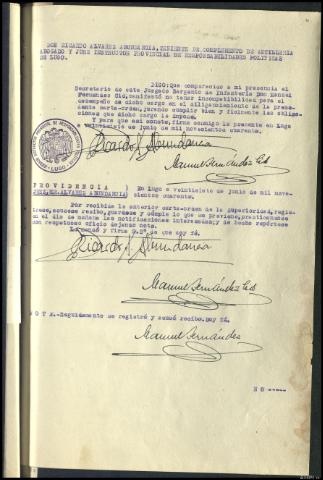 DON RICARDO ALVAREZ ABUNDANCIA, TENIENTE DE COMPLEMENTO DE ARTILLERIA
ABOGADO Y JUEZ INSTRUCTOR PROVINCIAL DE RESPONSABILIDADES POLITICAS
DE LUGO.
DIGO: Que comparecido a mi presencia el
Secretario de este Juzgado Sargento de Infantería Don Manuel
Fernandez Cid, manifestó no tener incompatibilidad para el
desempeño de dicho cargo en el diligenciamiento de la presente
carta-orden, jurando cumplir bien y fielmente las obligaciones
que dicho cargo le impone.
Y para que así conste, firma conmigo la presente en Lugo
a veintisiete de junio de mil novecientos cuarenta.
Ricardo A Abundancia
Manuel Fernández Cid
PROVIDENCIA
JUEZ, SR. ALVAREZ ABUNDANCIA)
En Lugo a veintisiete de junio de mil novecientos
cuarenta.
Por recibida la anterior carta-orden de la Superioridad, regístrese,
acúsese recibo, guárdese y cúmplase lo que se previene, practicándose
en el día de mañana las notificaciones interesadas, y de hecho repórtese
con respetuoso oficio dejando nota.
Lo mandó y firma S.Sª de que doy fé.
Ricardo A Abundancia
Manuel Fernández Cid
NOTA.-Seguidamente se registró y acusó recibo. Doy fé.
Manuel Fernández
NO-----